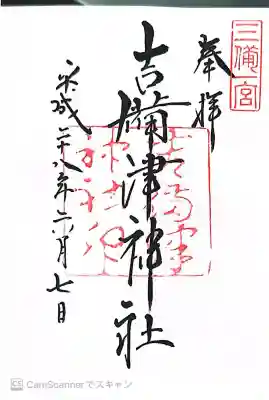 三備一宮
奉拝
吉備津神社
平成二十八年六月七日
CamScannerでスキャン